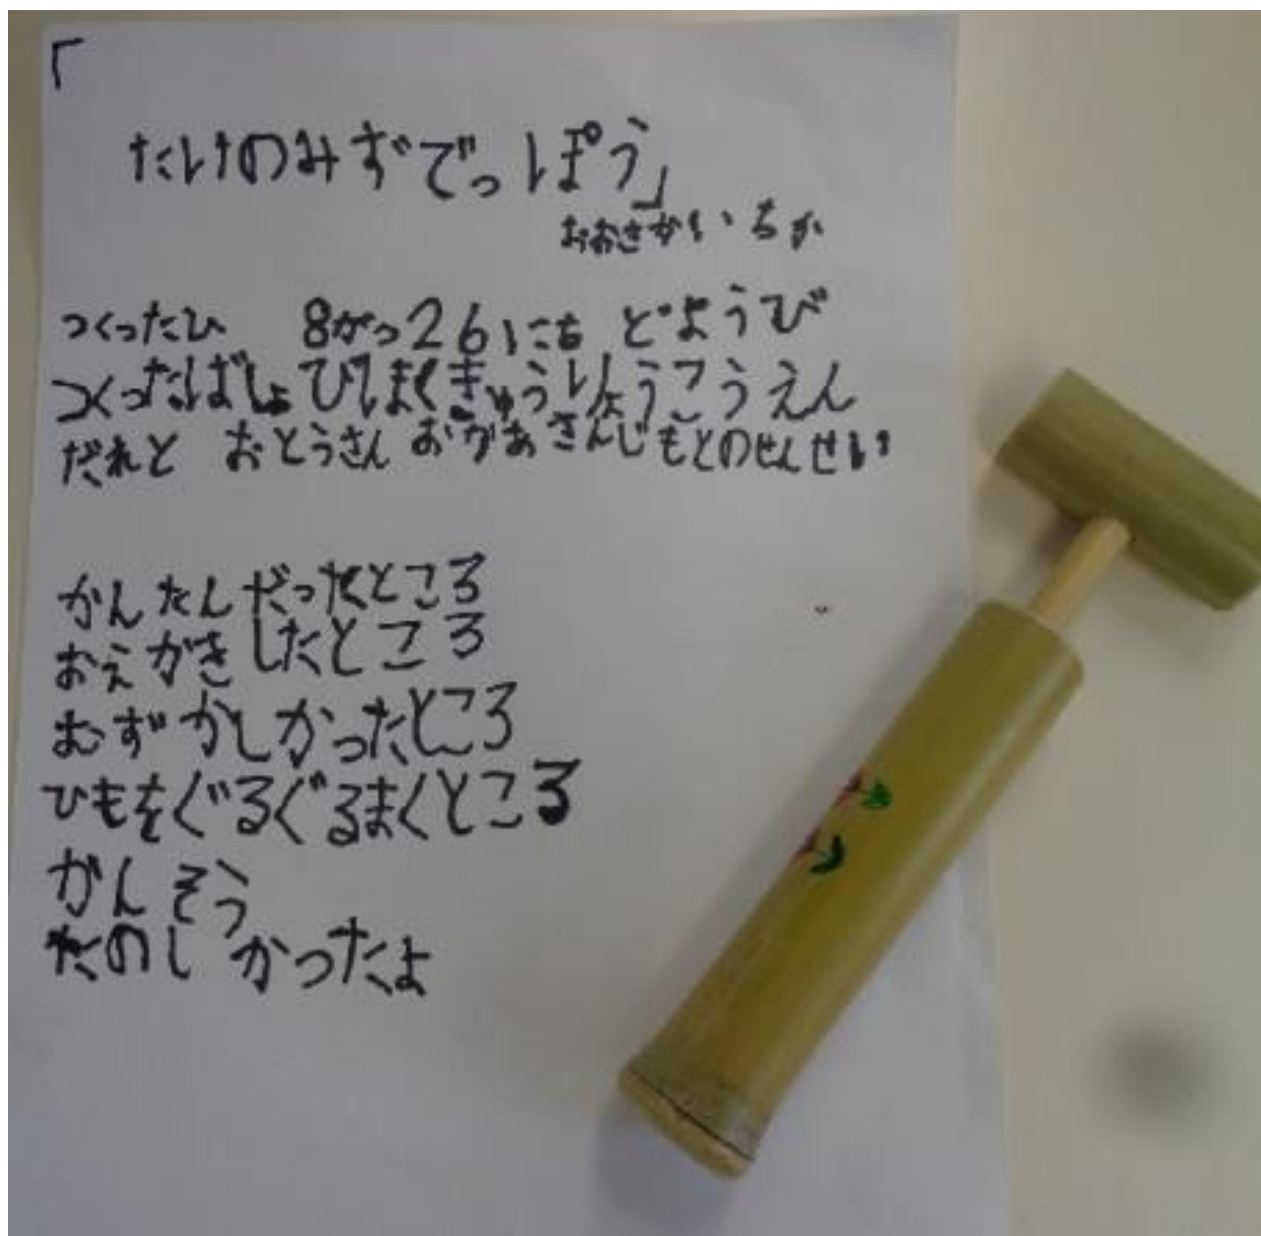 「
たけのみずでっぽう」
おおさかいちか
つくったひ 8がつ26にち どようび
つくったばしょ ひしまくきゅうしょうこうえん
だれと おとうさん おかあさん じもとのせんせい
かんたんだったところ
おえかきしたところ
むずかしかったところ
ひもをぐるぐるまくところ
かんそう
たのしかったよ